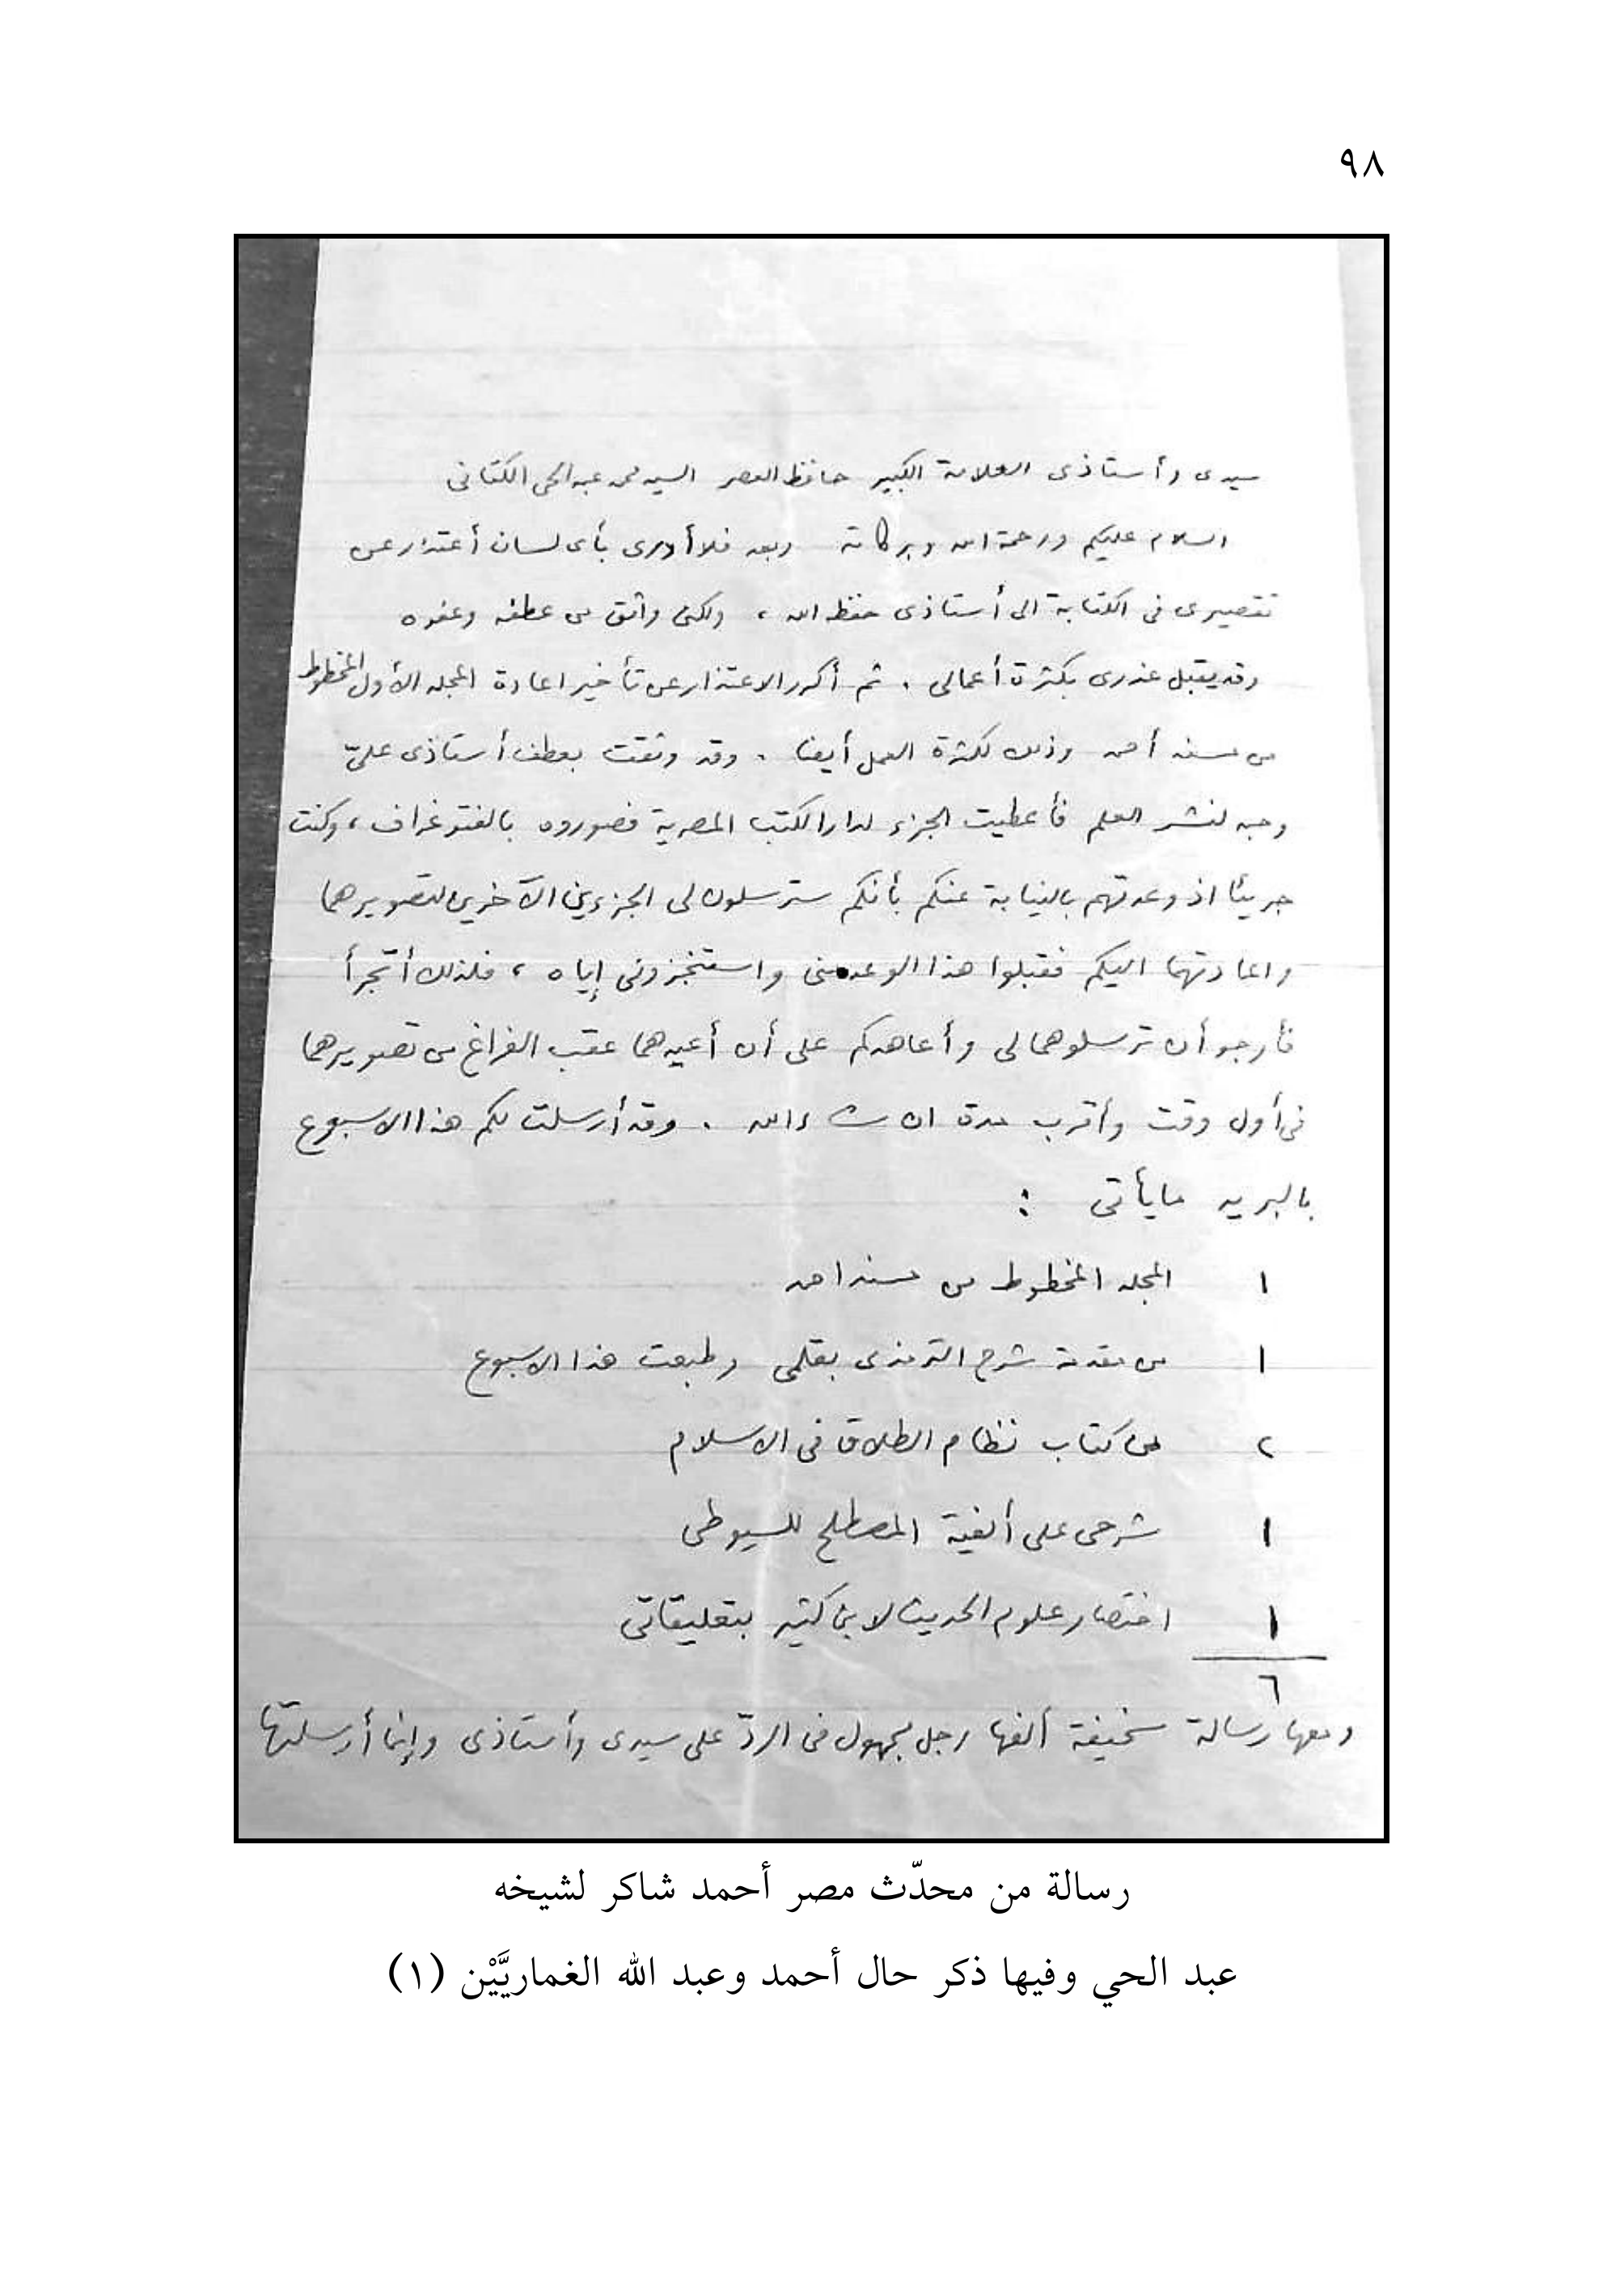 ٩٨
سيدى وأستاذى العلامة الكبير حافظ العصر السيد محمد عبد الحى الكتانى
السلام عليكم ورحمة الله وبركاته وبعد فلا أدرى بأى لسان أعتذر عن
تقصيرى فى الكتابة الى أستاذى حفظه الله ، ولكنى واثق من عطفه وعفوه
وقد يقبل عذرى بكثرة أعمالى . ثم أكرر الاعتذار عن تأخير اعادة المجلد الأول المخطوط
من مسند أحمد وذلك لكثرة العمل أيضا . وقد وثقت بعطف أستاذى علىّ
وحبه لنشر العلم فأعطيت الجزء لدار الكتب المصرية فصوروه بالفتوغراف ، وكنت
جريئا اذ وعدتهم بالنيابة عنكم بأنكم سترسلون لى الجزءين الآخرين لتصويرهما
واعادتهما اليكم فقبلوا هذا الوعد منى واستنجزونى إياه ، فلذلك أتجرأ
فأرجو أن ترسلوهما لى وأعاهدكم على أن أعيدهما عقب الفراغ من تصويرهما
فى أول وقت وأقرب مدة ان شاء الله . وقد أرسلت لكم هذا الاسبوع
بالبريد ما يأتى :
١ المجلد المخطوط من مسند احمد
١ من مقدمة شرح الترمذى بقلمى وطبعت هذا الاسبوع
٢ من كتاب نظام الطلاق فى الاسلام
١ شرحى على ألفية المصطلح للسيوطى
١ اختصار علوم الحديث لابن كثير بتعليقاتى
٦
ومعها رسالة سخيفة ألفها رجل مجهول فى الردّ على سيدى وأستاذى وإنما أرسلتها
رسالة من محدّث مصر أحمد شاكر لشيخه
عبد الحي وفيها ذكر حال أحمد وعبد الله الغماريَّيْن (١)